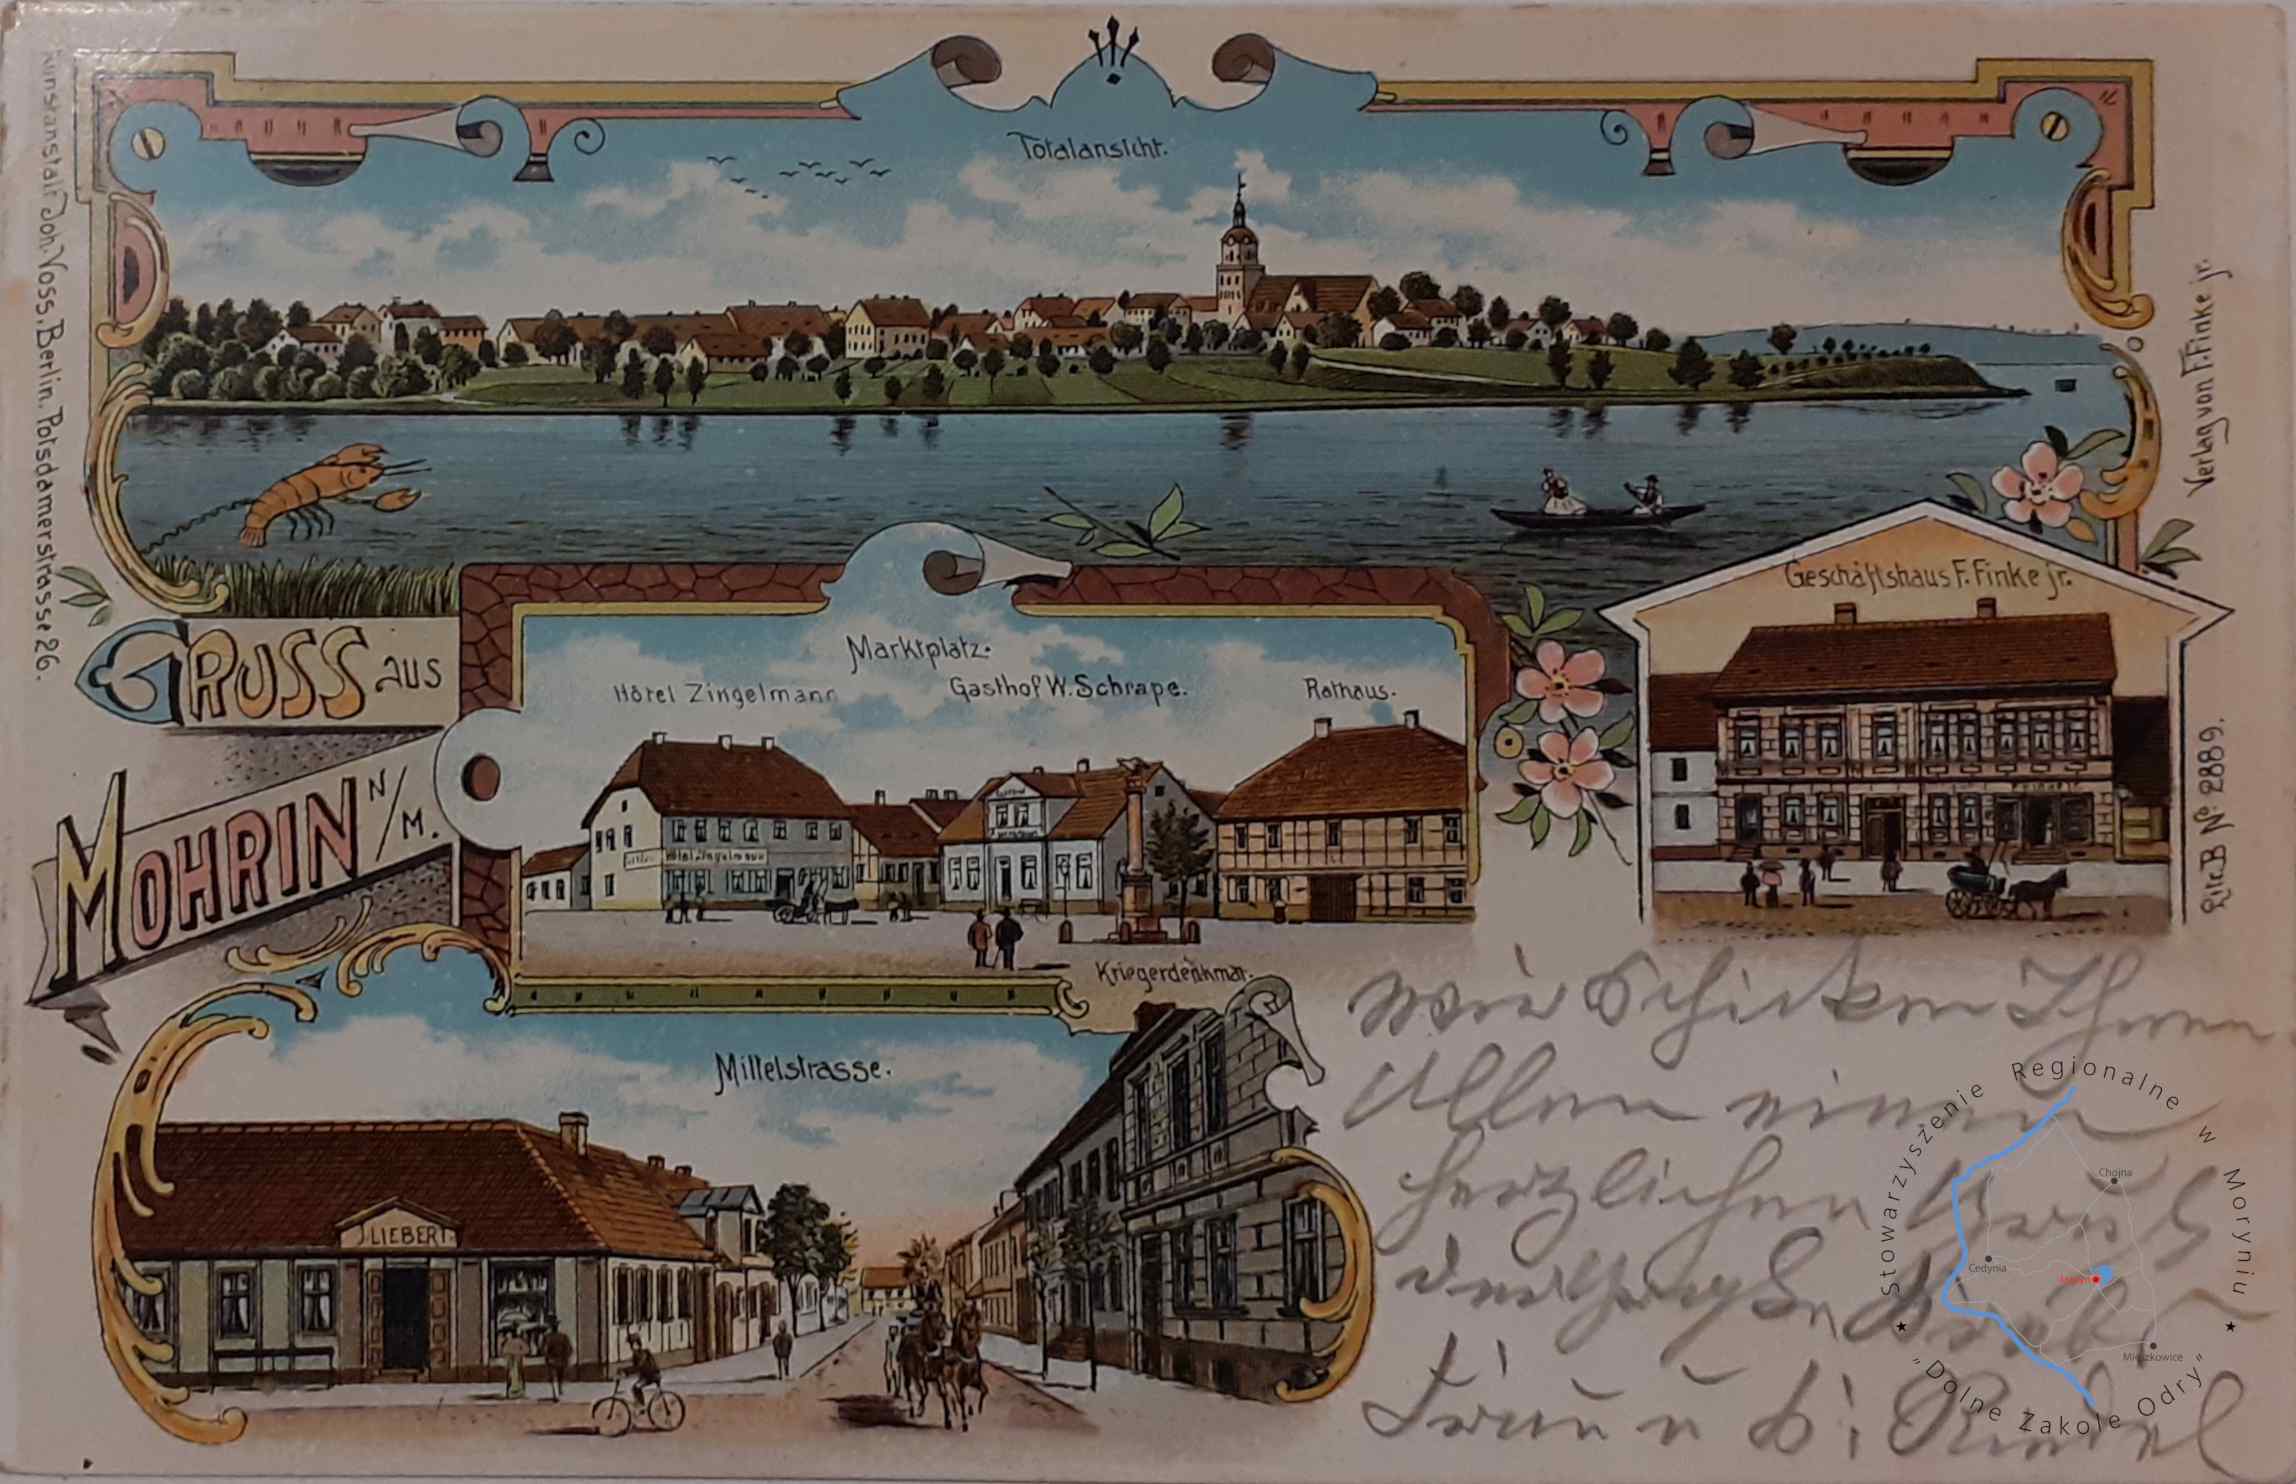 Totalansicht.
Kunstanstalt Joh. Voss, Berlin. Potsdamerstrasse 26.
Verlag von F. Finke jr.
Ltr. B No. 2889.
GRUSS aus
MOHRIN N/M.
Marktplatz.
Hôtel Zingelmann
Gasthof W. Schrape.
Rathaus.
Hôtel Zingelmann
Kriegerdenkmal.
Geschäftshaus F. Finke jr.
Mittelstrasse.
J. LIEBERT.
Wir Schicken Ihnen
Allen einen
herzlichen Gruß
Stowarzyszenie Regionalne w Moryniu
"Dolne Zakole Odry"
Chojna
Cedynia
Moryń
Mieszkowice